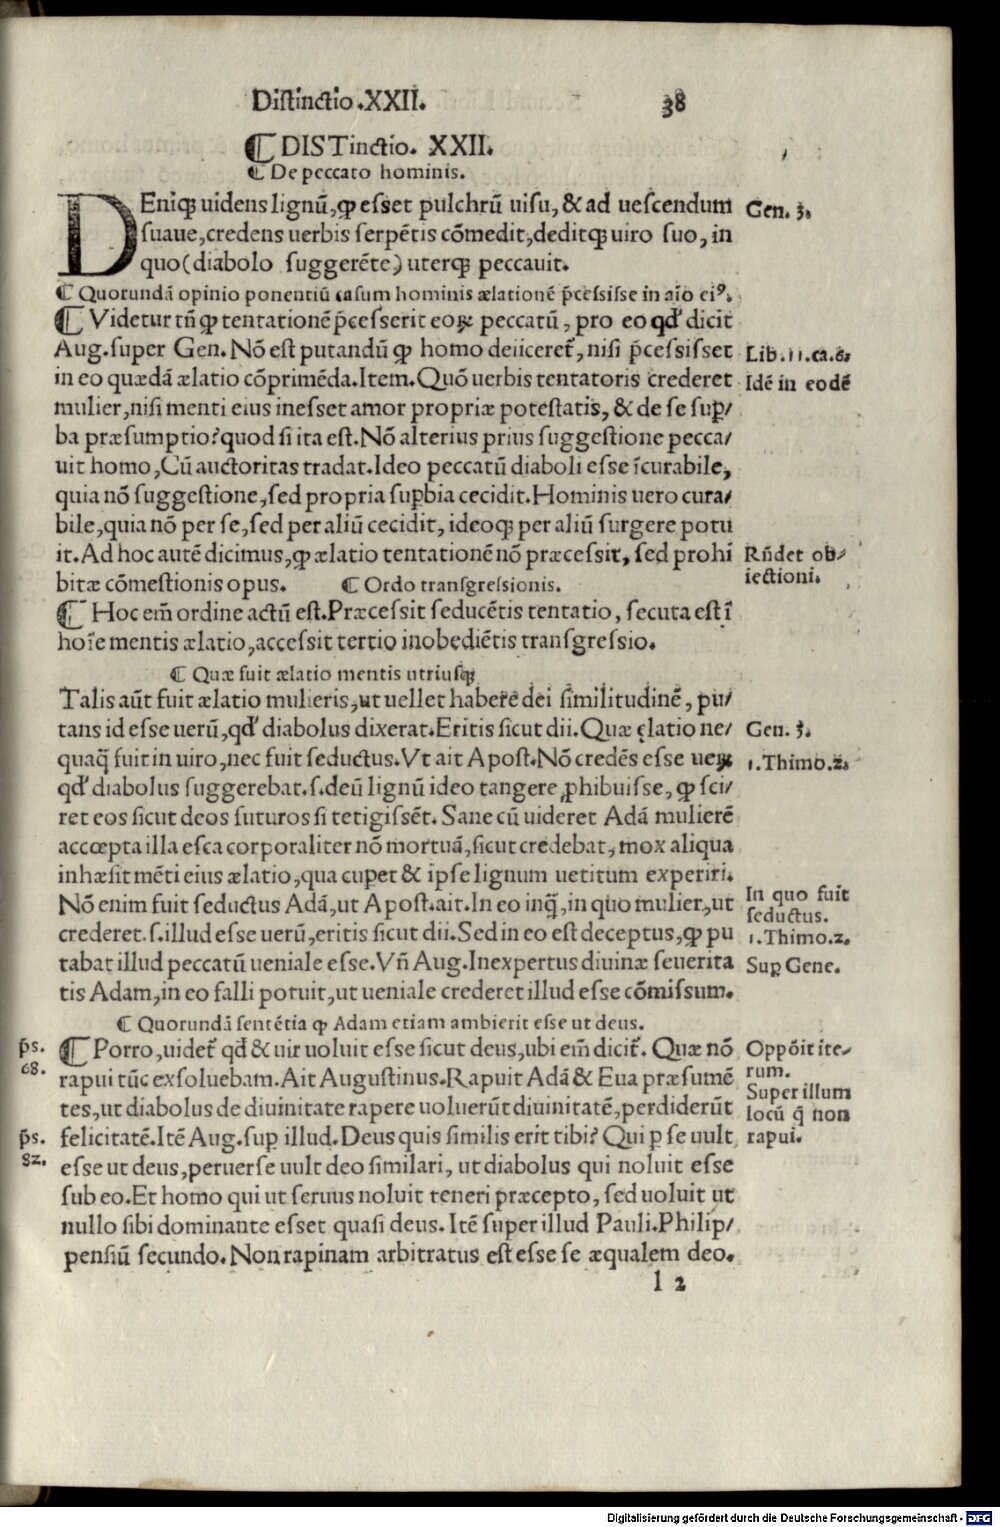 Distinctio .XXII. 38
¶ DISTinctio. XXII.
¶ De peccato hominis.
DEniqꝫ uidens lignū, ꝙ esset pulchrū uisu, & ad uescendum
suaue, credens uerbis serpētis cōmedit, deditqꝫ uiro suo, in
quo (diabolo suggerēte) uterqꝫ peccauit.
Gen. 3.
¶ Quorundā opinio ponentiū casum hominis ælationē p̄cessisse in aīo eiꝰ.
¶ Videtur tn̄ ꝙ tentationē p̄cesserit eoꝝ peccatū, pro eo qđ dicit
Aug. super Gen. Nō est putandū ꝙ homo deiiceret̄, nisi p̄cessisset
Lib. 11. ca. 6.
in eo quædā ælatio cōprimēda. Item. Quō uerbis tentatoris crederet
Idē in eodē
mulier, nisi menti eius inesset amor propriæ potestatis, & de se suꝑ/
ba præsumptio? quod si ita est. Nō alterius prius suggestione pecca/
uit homo, Cū auctoritas tradat. Ideo peccatū diaboli esse īcurabile,
quia nō suggestione, sed propria suꝑbia cecidit. Hominis uero cura/
bile, quia nō per se, sed per aliū cecidit, ideoqꝫ per aliū surgere potu
it. Ad hoc autē dicimus, ꝙ ælatio tentationē nō præcessit, sed prohi
Rn̄det ob/
iectioni.
bitæ cōmestionis opus. ¶ Ordo transgressionis.
¶ Hoc em̄ ordine actū est. Præcessit seducētis tentatio, secuta est ī
hoīe mentis ælatio, accessit tertio inobediētis transgressio.
¶ Quæ fuit ælatio mentis utriusqꝫ
Talis aūt fuit ælatio mulieris, ut uellet habere dei similitudinē, pu/
tans id esse uerū, qđ diabolus dixerat. Eritis sicut dii. Quæ ęlatio ne/
Gen. 3.
quaq̄ fuit in uiro, nec fuit seductus. Vt ait Apost. Nō credēs esse ueꝝ
1. Thimo. 2.
qđ diabolus suggerebat. s. deū lignū ideo tangere ꝓhibuisse, ꝙ sci/
ret eos sicut deos futuros si tetigissēt. Sane cū uideret Adā mulierē
accœpta illa esca corporaliter nō mortuā, sicut credebat, mox aliqua
inhæsit mēti eius ælatio, qua cupet & ipse lignum uetitum experiri.
Nō enim fuit seductus Adā, ut Apost. ait. In eo inq̄, in quo mulier, ut
In quo fuit
seductus.
crederet. s. illud esse uerū, eritis sicut dii. Sed in eo est deceptus, ꝙ pu
1. Thimo. 2.
tabat illud peccatū ueniale esse. Vn̄ Aug. Inexpertus diuinæ seuerita
Suꝑ Gene.
tis Adam, in eo falli potuit, ut ueniale crederet illud esse cōmissum.
¶ Quorundā sentētia ꝙ Adam etiam ambierit esse ut deus.
p̄s.
68.
¶ Porro, uidet̄ qđ & uir uoluit esse sicut deus, ubi em̄ dicit̄. Quæ nō
Oppōit ite/
rum.
rapui tūc exsoluebam. Ait Augustinus. Rapuit Adā & Eua præsumē
Super illum
tes, ut diabolus de diuinitate rapere uoluerūt diuinitatē, perdiderūt
locū q̄ non
p̄s.
82.
felicitatē. Itē Aug. suꝑ illud. Deus quis similis erit tibi? Qui ꝑ se uult
rapui.
esse ut deus, peruerse uult deo similari, ut diabolus qui noluit esse
sub eo. Et homo qui ut seruus noluit teneri præcepto, sed uoluit ut
nullo sibi dominante esset quasi deus. Itē super illud Pauli. Philip/
pensiū secundo. Non rapinam arbitratus est esse se æqualem deo.
l 2
Digitalisierung gefördert durch die Deutsche Forschungsgemeinschaft - DFG